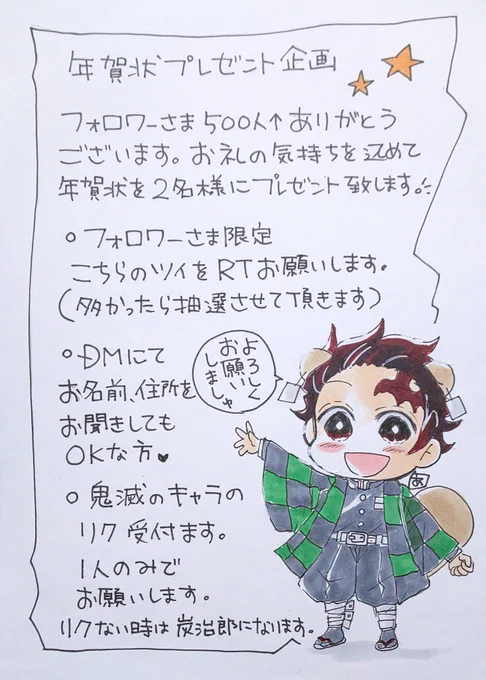 年賀状プレゼント企画
フォロワーさま500人↑ありがとう
ございます。お礼の気持ちを込めて
年賀状を2名様にプレゼント致します。
○フォロワーさま限定
こちらのツイをRTお願いします。
(多かったら抽選させて頂きます)
○DMにて
お名前、住所を
お聞きしても
OKな方♥
よろしく
お願い
しましゅ
○鬼滅のキャラの
リク受付ます。
1人のみで
お願いします。
リクない時は炭治郎になります。
あ